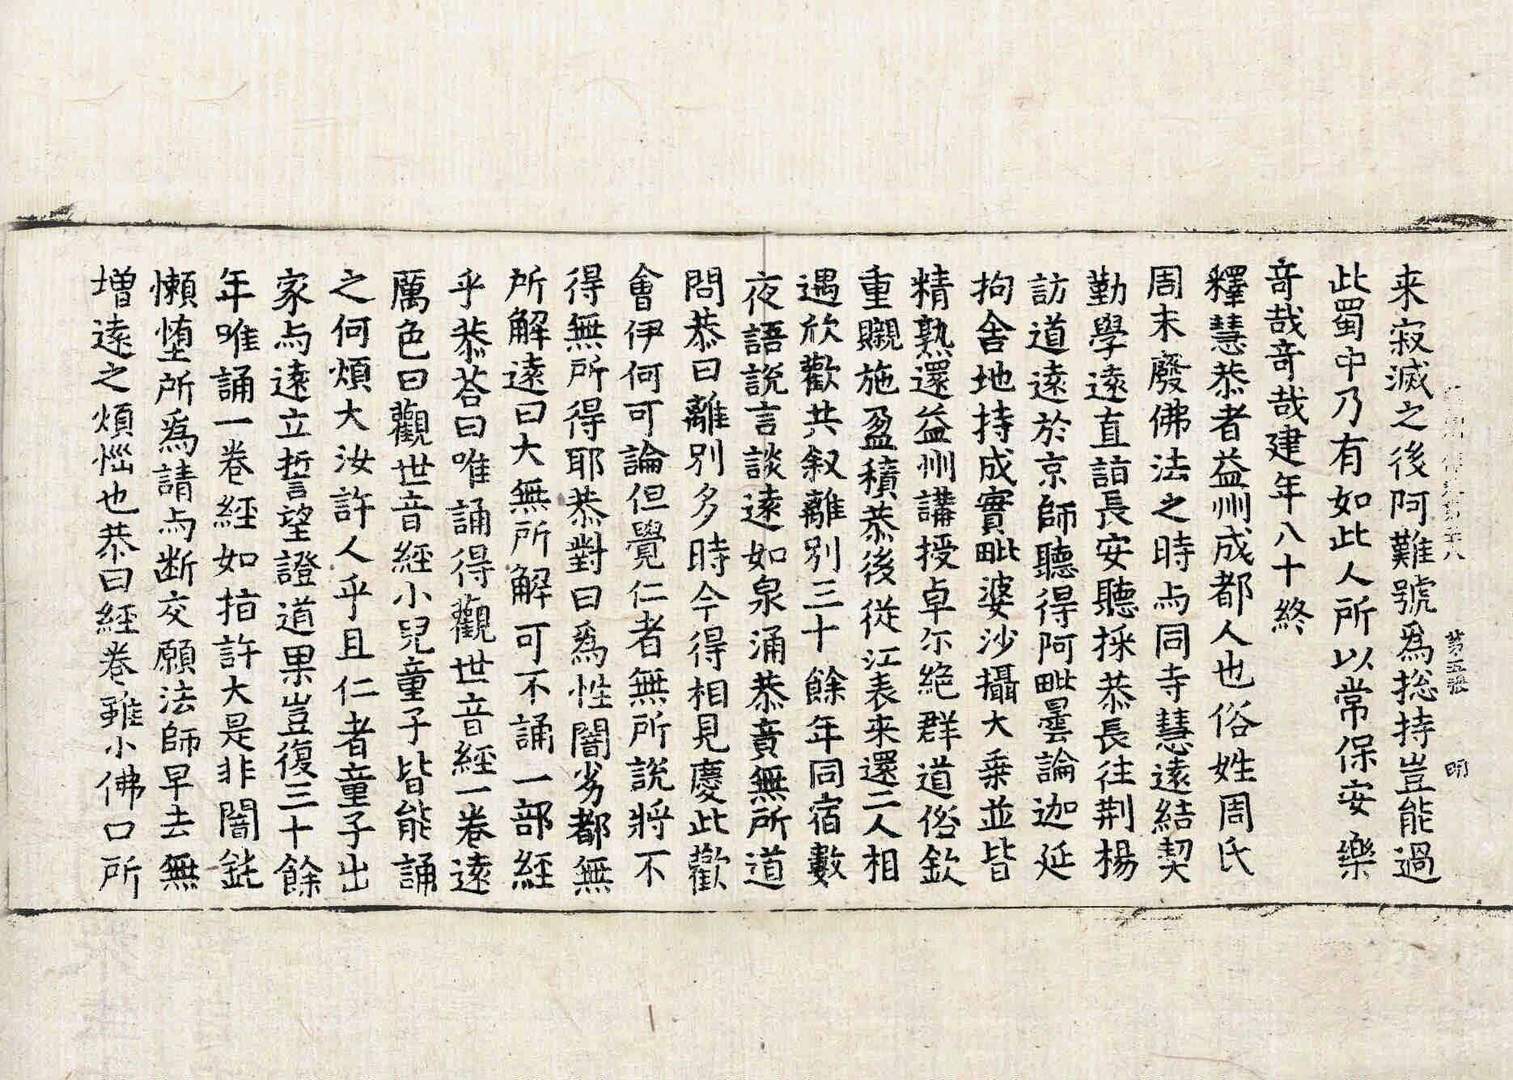 来寂滅之後阿難號為捴持豈能過
此蜀中乃有如此人所以常保安樂
竒哉竒哉建年八十終
釋慧恭者益州成都人也俗姓周氏
周末廢佛法之時与同寺慧遠結契
勤學遠直詣長安聽採恭長往荆楊
訪道遠於京師聽得阿毗曇論迦延
拘舍地持成實毗婆沙攝大乗並皆
精熟還益州講授卓尔絶群道俗欽
重嚫施盈積恭後從江表来還二人相
遇欣歡共叙離別三十餘年同宿數
夜語説言談遠如泉涌恭竟無所道
問恭曰離別多時今得相見慶此歡
會伊何可論但覺仁者無所説將不
得無所得耶恭對曰為性闇劣都無
所解遠曰大無所解可不誦一部經
乎恭荅曰唯誦得觀世音經一卷遠
厲色曰觀世音經小兒童子皆能誦
之何煩大汝許人乎且仁者童子出
家与遠立誓望證道果豈復三十餘
年唯誦一卷經如指許大是非闇鈍
懶墮所為請与断交願法師早去無
增遠之煩惱也恭曰經卷雖小佛口所
第五張 明